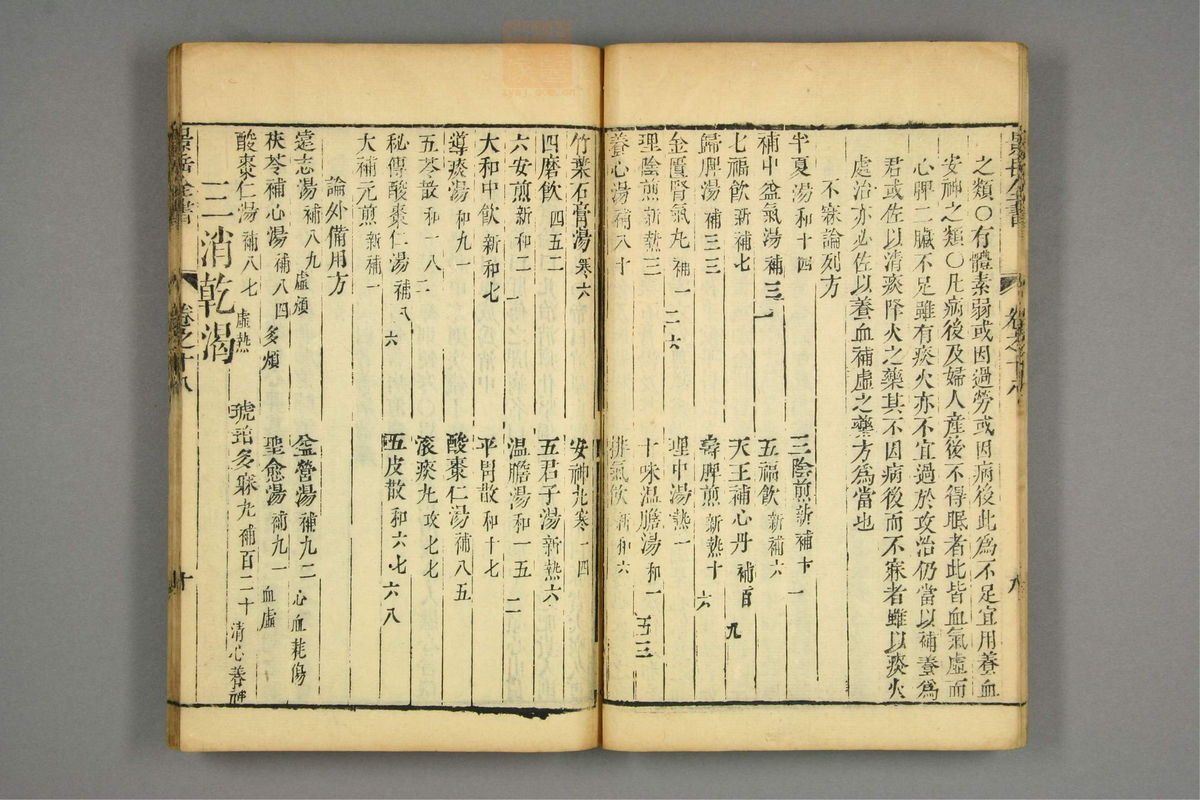 之類○有體素弱或因過勞或因病後此為不足宜用養血
安神之類○凡病後及婦人產後不得眠者此皆血氣虛而
心脾二臟不足雖有痰火亦不宜過於攻治仍當以補養為
君或佐以清痰降火之藥其不因病後而不寐者雖以痰火
處治亦必佐以養血補虛之藥方為當也
不寐論列方
半夏湯和十四 三陰煎新補十一
補中益氣湯補三一 五福飲新補六
七福飲新補七 天王補心丹補百九
歸脾湯補三三 壽脾煎新熱十六
金匱腎氣丸補一二六 理中湯熱一
理陰煎新熱三 十味溫膽湯和一五三
養心湯補八十 排氣飲新和六
竹葉石膏湯寒六 安神丸寒一四
四磨飲四五二 五君子湯新熱六
六安煎新和二一 溫膽湯和一五二
大和中飲新和七 平胃散和十七
導痰湯和九一 酸棗仁湯補八五
五苓散和一八二 滾痰丸攻七七
秘傳酸棗仁湯補八六 五皮散和六七六八
大補元煎新補一
論外備用方
遠志湯補八九虛煩 益營湯補九二心血耗傷
茯苓補心湯補八四多煩 聖愈湯補九一血虛
酸棗仁湯補八七虛熱 琥珀多寐丸補百二十清心養神
三消乾渴
景岳全書 卷之十八 十
景岳全書 卷之十八 八